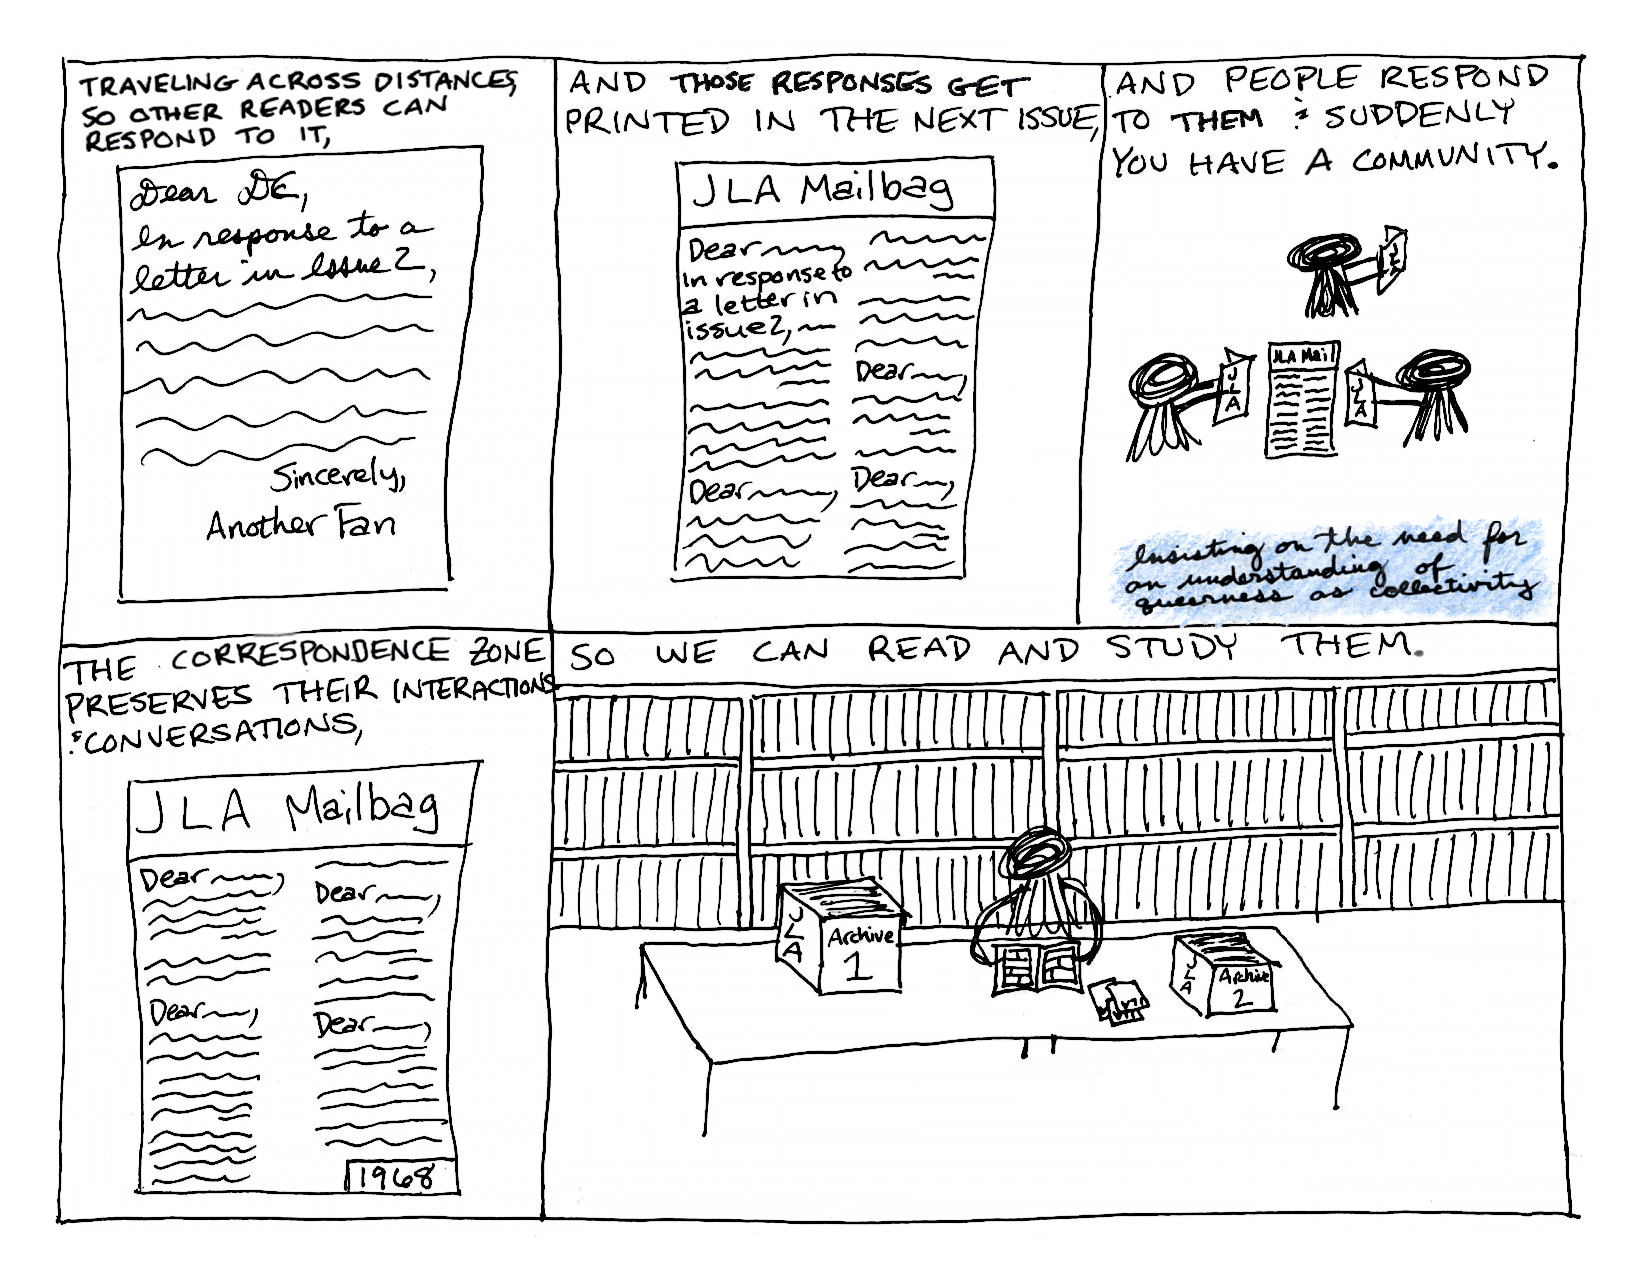 TRAVELING ACROSS DISTANCES,
SO OTHER READERS CAN
RESPOND TO IT,
Dear DC,
In response to a
letter in Issue 2,
Sincerely,
Another Fan
AND THOSE RESPONSES GET
PRINTED IN THE NEXT ISSUE,
JLA Mailbag
Dear
in response to
a letter in
issue 2,
Dear
Dear
Dear
AND PEOPLE RESPOND
TO THEM & SUDDENLY
YOU HAVE A COMMUNITY.
JLA
JLA
JLA Mail
JLA
Insisting on the need for
an understanding of
queerness as collectivity
THE CORRESPONDENCE ZONE
PRESERVES THEIR INTERACTIONS
& CONVERSATIONS,
JLA Mailbag
Dear
Dear
Dear
Dear
1968
SO WE CAN READ AND STUDY THEM.
JLA
Archive
1
JLA
Archive
2